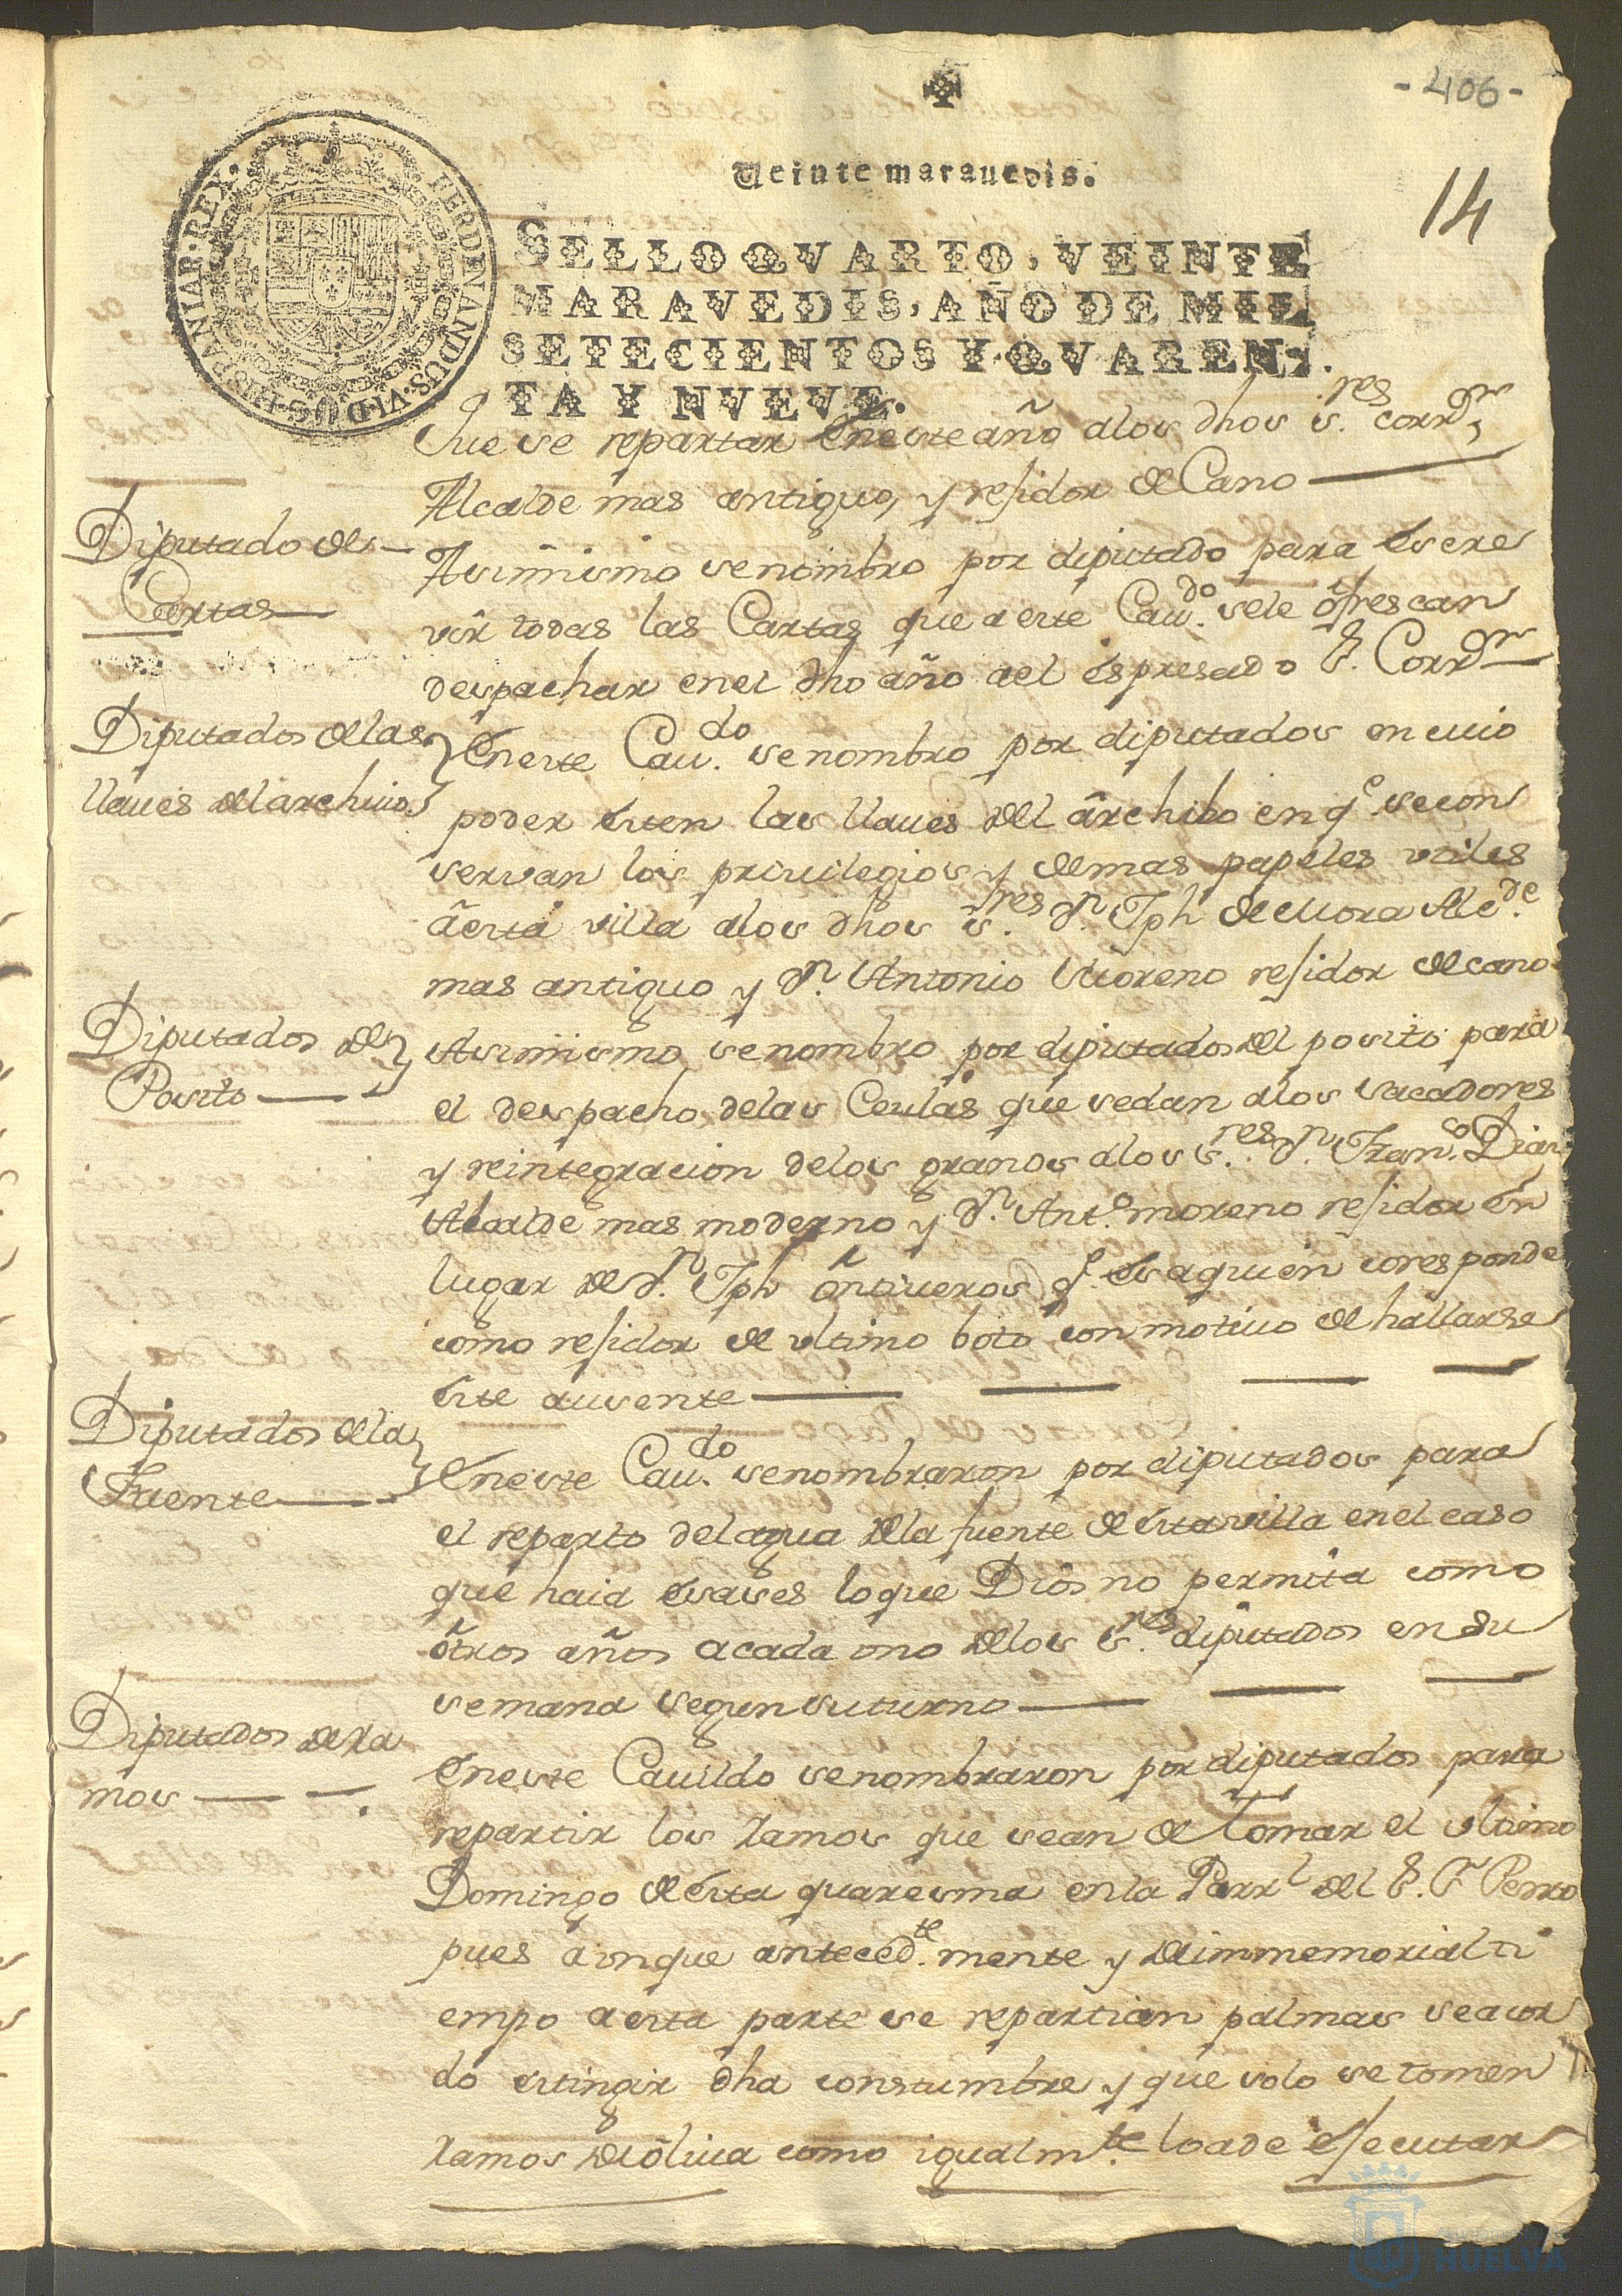 - 406 -
14
Veinte marauedis.
SELLO QVARTO, VEINTE
MARAVEDIS, AÑO DE MIL
SETECIENTOS Y QVAREN-
TA Y NVEVE.
FERDINANDUS·VI·D·G·HISPANIAR·REX·
Que se repartan en este año alos dhos s.res corr.or
Alcalde mas antiguo, y residor de Cano
Diputado de
Cartas
Asimismo se nombro por diputado para escre
vir todas las Cartas que a este Cau.do sele ofrescan
despachar en el dho año ael espresado S. Corr.or
Diputados de las
llaues del archiuo
En este Cau.do se nombro por diputados en cuio
poder esten las llaues del archibo en q.e se con
servan los priuilegios y demas papeles vtiles
a esta villa alos dhos s.res d.n Jph de Mora Alc.de
mas antiguo y d.n Antonio Moreno residor decano
Diputados del
Posito
Asimismo se nombro por diputados del posito para
el despacho de las Ceulas que sedan alos sacadores
y reintegracion delos granos alos s.res d.n Fran.co Dias
Alcalde mas moderno y d.n Ant.o moreno residor en
lugar de d.n Jph ontiueros q.e es aquien coresponde
como residor de vltimo boto con motiuo de hallarse
este ausente
Diputados de la
Fuente
En este Cau.do se nombraron por diputados para
el reparto del agua de la fuente de esta villa en el caso
que haia esases lo que Dios no permita como
otros años acada ono delos s.res diputados en su
semana segun su turno
Diputados de ra
mos
En este Cauildo se nombraron por diputados para
repartir los ramos que sean de tomar el vltimo
Domingo de esta quaresma en la Parr.l del S. S.r Pedro
pues aunque anteced.te mente y de immemorial ti
empo a esta parte se repartian palmas se acor
do estingir dha constumbre y que solo se tomen
ramos de oliua como igualm.te lo a de esecutar
HUELVA